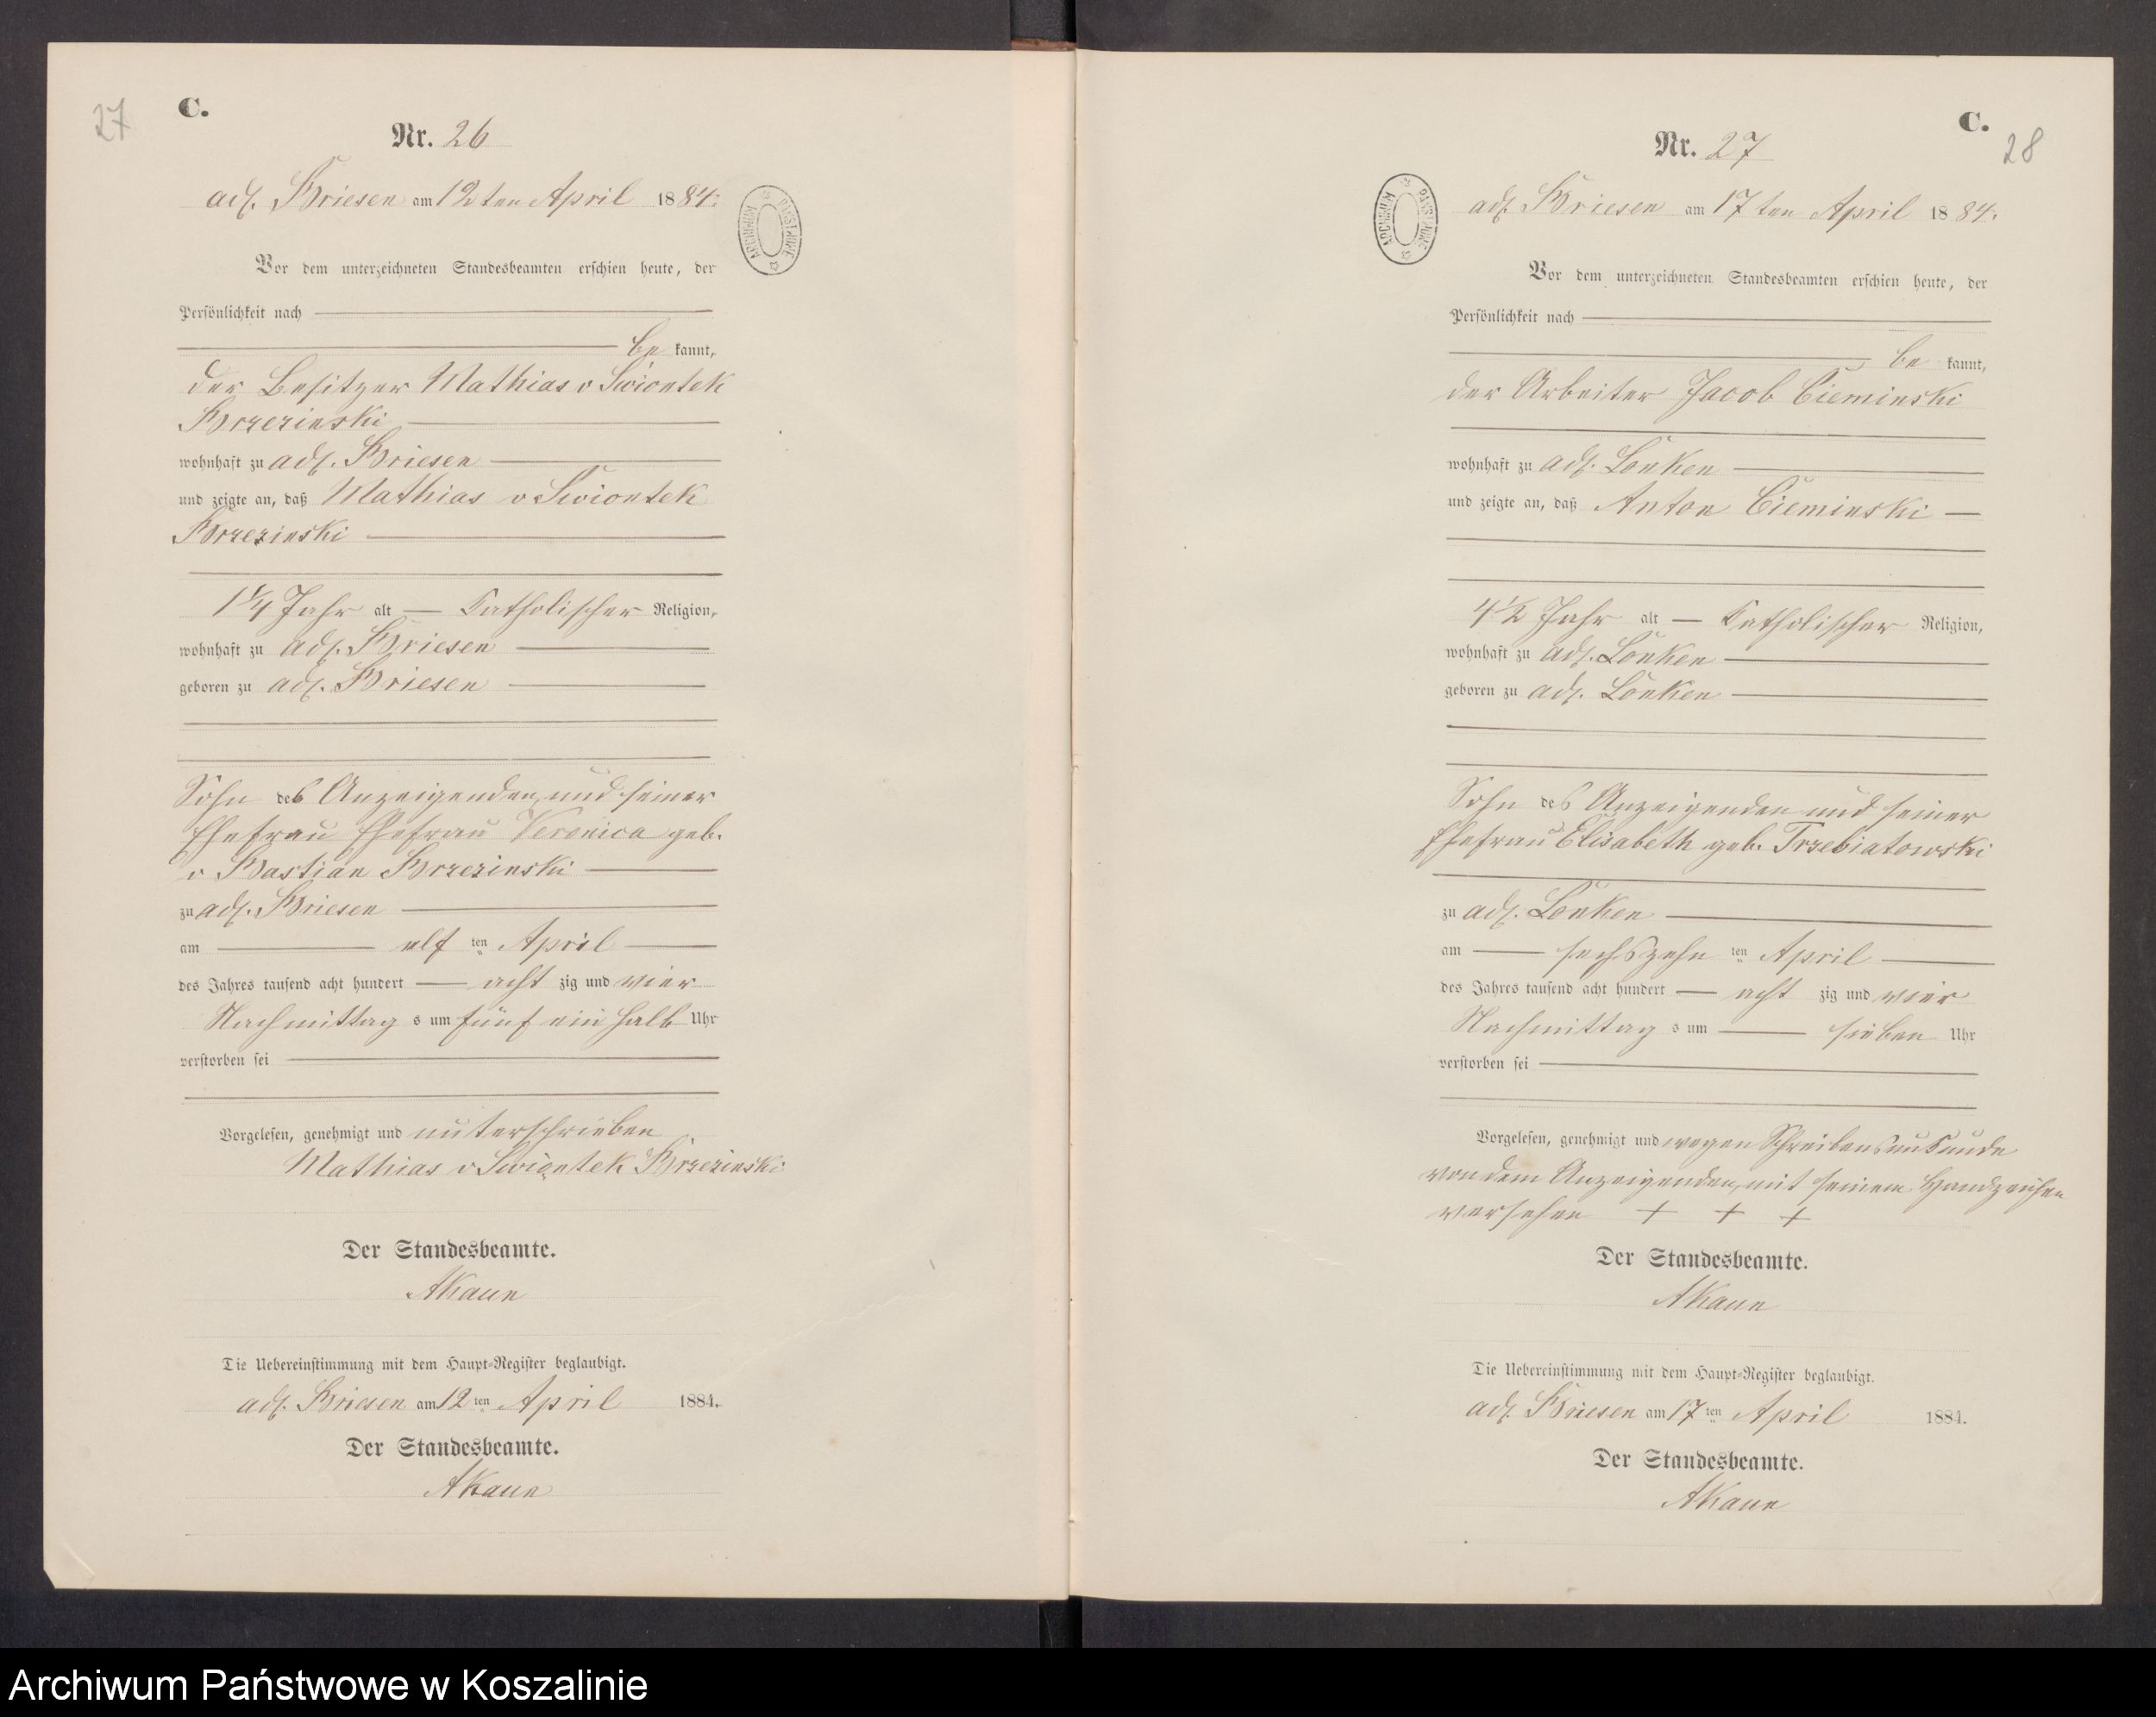 27
C.
Nr. 26
adl. Briesen am 12ten April 1884.
Vor dem unterzeichneten Standesbeamten erschien heute, der
Persönlichkeit nach
be kannt,
der Besitzer Mathias v Swiontek
Brzezinski
wohnhaft zu adl. Briesen
und zeigte an, daß Mathias v Swiontek
Brzezinski
1 1/4 Jahr alt — Katholischer Religion,
wohnhaft zu adl. Briesen
geboren zu adl. Briesen
Sohn des Anzeigenden und seiner
Ehefrau Ehefrau Veronica geb.
v Bastian Brzezinski
zu adl. Briesen
am elf ten April
des Jahres tausend acht hundert — acht zig und vier
Nachmittag s um fünf ein halb Uhr
verstorben sei
Vorgelesen, genehmigt und unterschrieben
Mathias v Swiontek Brzezinski
Der Standesbeamte.
AKaun
Die Uebereinstimmung mit dem Haupt-Register beglaubigt.
adl. Briesen am 12 ten April 1884.
Der Standesbeamte.
AKaun
C.
28
Nr. 27
ARCHIWUM PAŃSTWOWE
adl. Briesen am 17 ten April 1884.
Vor dem unterzeichneten Standesbeamten erschien heute, der
Persönlichkeit nach
be kannt,
der Arbeiter Jacob Cieminski
wohnhaft zu adl. Lonken
und zeigte an, daß Anton Cieminski —
4 1/2 Jahr alt — Katholischer Religion,
wohnhaft zu adl. Lonken
geboren zu adl. Lonken
Sohn des Anzeigenden und seiner
Ehefrau Elisabeth geb. Trzebiatowski
zu adl. Lonken
am — sechszehn ten April
des Jahres tausend acht hundert — acht zig und vier
Nachmittag s um — sieben Uhr
verstorben sei
Vorgelesen, genehmigt und wegen Schreibensunkunde
von dem Anzeigenden, mit seinem Handzeichen
versehen + + +
Der Standesbeamte.
AKaun
Die Uebereinstimmung mit dem Haupt-Register beglaubigt.
adl. Briesen am 17 ten April 1884.
Der Standesbeamte.
AKaun
Archiwum Państwowe w Koszalinie